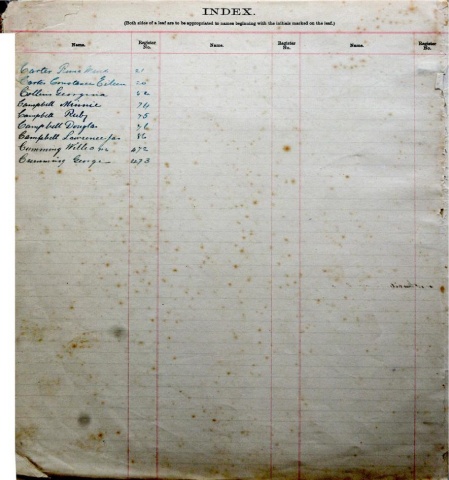 INDEX.
(Both sides of a leaf are to be appropriated to names beginning with the initials marked on the leaf.)
Name. Register No. Name. Register No. Name. Register No.
Carter 21
Carter Constance Eileen
Collins Georgina 62
Campbell Minnie 74
Campbell Ruby 75
Campbell Douglas 76
Campbell Lawrence
Cumming William 272
Cumming George 273